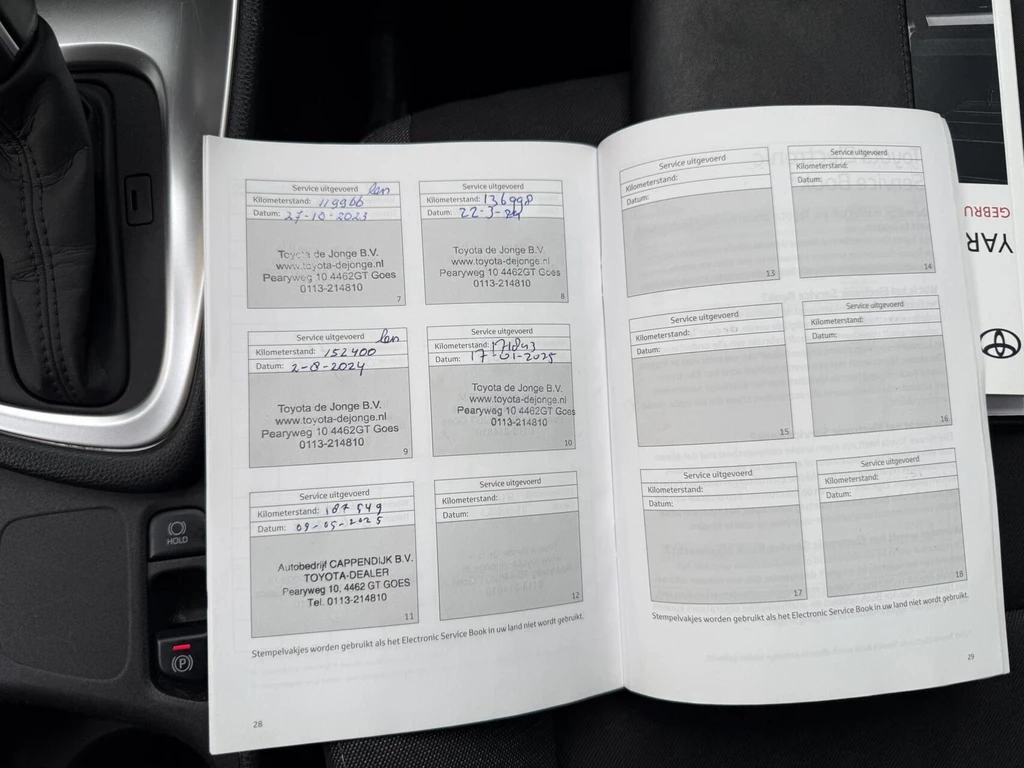 Service uitgevoerd
Kilometerstand: 119966
Datum: 27-10-2023
Toyota de Jonge B.V.
www.toyota-dejonge.nl
Pearyweg 10 4462GT Goes
0113-214810
7
Service uitgevoerd
Kilometerstand: 136998
Datum: 22-3-24
Toyota de Jonge B.V.
www.toyota-dejonge.nl
Pearyweg 10 4462GT Goes
0113-214810
8
Service uitgevoerd
Kilometerstand: 152400
Datum: 2-8-2024
Toyota de Jonge B.V.
www.toyota-dejonge.nl
Pearyweg 10 4462GT Goes
0113-214810
9
Service uitgevoerd
Kilometerstand: 171843
Datum: 17-01-2025
Toyota de Jonge B.V.
www.toyota-dejonge.nl
Pearyweg 10 4462GT Goes
0113-214810
10
Service uitgevoerd
Kilometerstand: 187549
Datum: 09-05-2025
Autobedrijf CAPPENDIJK B.V.
TOYOTA-DEALER
Pearyweg 10, 4462 GT GOES
Tel. 0113-214810
11
Service uitgevoerd
Kilometerstand:
Datum:
12
Stempelvakjes worden gebruikt als het Electronic Service Book in uw land niet wordt gebruikt.
28
Service uitgevoerd
Kilometerstand:
Datum:
13
Service uitgevoerd
Kilometerstand:
Datum:
14
Service uitgevoerd
Kilometerstand:
Datum:
15
Service uitgevoerd
Kilometerstand:
Datum:
16
Service uitgevoerd
Kilometerstand:
Datum:
17
Service uitgevoerd
Kilometerstand:
Datum:
18
Stempelvakjes worden gebruikt als het Electronic Service Book in uw land niet wordt gebruikt.
29
GEBRU
YAR
HOLD
P